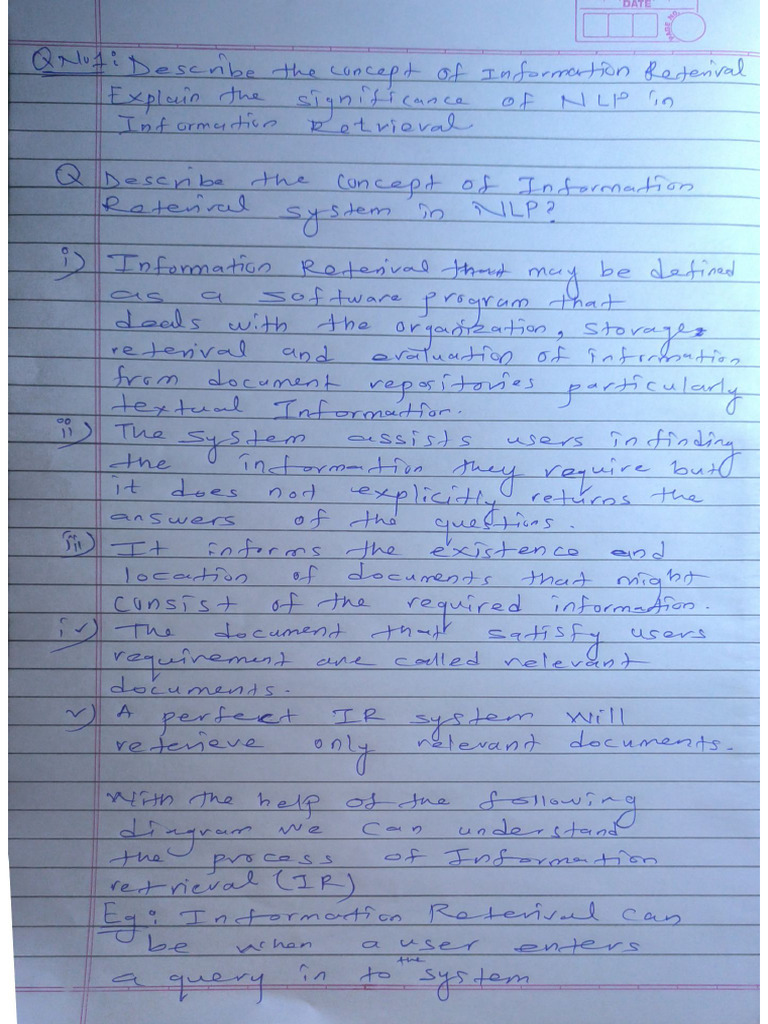 DATE
PAGE NO.
QNo1: Describe the concept of Information Reterival
Explain the significance of NLP in
Information Retrieval
Q Describe the concept of Information
Reterival system in NLP?
i) Information Reterival that may be defined
as a software program that
deals with the organization, storage,
reterival and evaluation of information
from document repositories particularly
textual Information.
ii) The system assists users in finding
the information they require but
it does not explicitly returns the
answers of the questions.
iii) It informs the existence and
location of documents that might
consist of the required information.
iv) The document that satisfy users
requirement are called relevant
documents.
v) A perfect IR system will
reterieve only relevant documents.
With the help of the following
diagram we can understand
the process of Information
retrieval (IR)
Eg: Information Reterival can
be when a user enters
a query in to the system